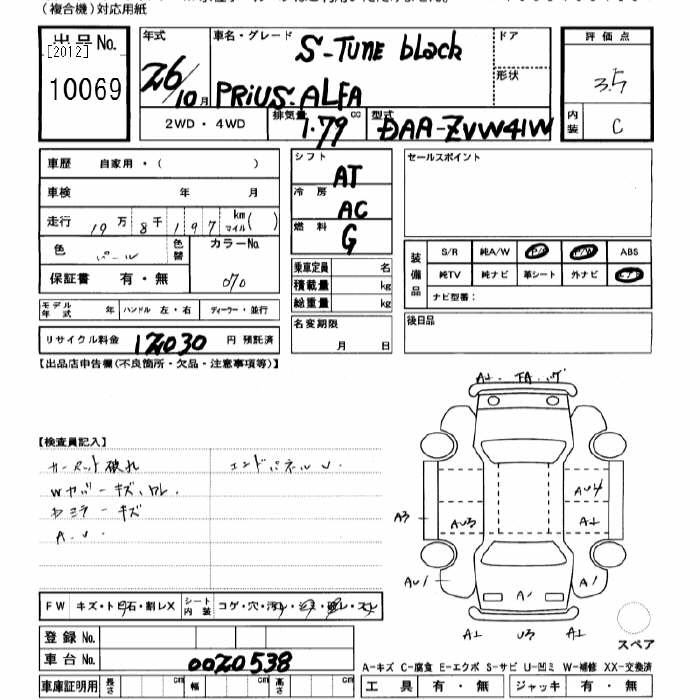 (複合機)対応用紙
出品No.
[2012]
10069
年式
26/10月
車名・グレード
S-TUNE black
PRiUS-ALFA
ドア
形状
評価点
3.5
内装
C
2WD・4WD
排気量
1.79 cc
型式
DAA-ZVW41W
車歴 自家用・( )
車検 年 月
走行 19万8千197 km マイル( )
色 パール
色替
カラーNo.
070
保証書 有・無
モデル年式 年
ハンドル 左・右
ディーラー・並行
リサイクル料金 12030 円 預託済
シフト
AT
冷房
AC
燃料
G
乗車定員 名
積載量 kg
総重量 kg
名変期限
月 日
セールスポイント
装備品
S/R 純A/W ABS
純TV 純ナビ 革シート 外ナビ
ナビ型番:
後日品
【出品店申告欄(不良箇所・欠品・注意事項等)】
【検査員記入】
カーペット破れ
エンドパネルU.
Wカバーキズ、ワレ.
ドミラーキズ
A.U.
FW キズ・ト石・割レX
シート内装 コゲ・穴・汚レ・
登録No.
車台No. 0020538
車庫証明用 長さ cm 幅 cm 高さ cm
A1 FA ハゲ
A3
AU3
AU4
A1
AU1
A1
A1
A1 U3 A1
スペア
A-キズ C-腐食 E-エクボ S-サビ U-凹ミ W-補修 XX-交換済
工具 有・無 ジャッキ 有・無